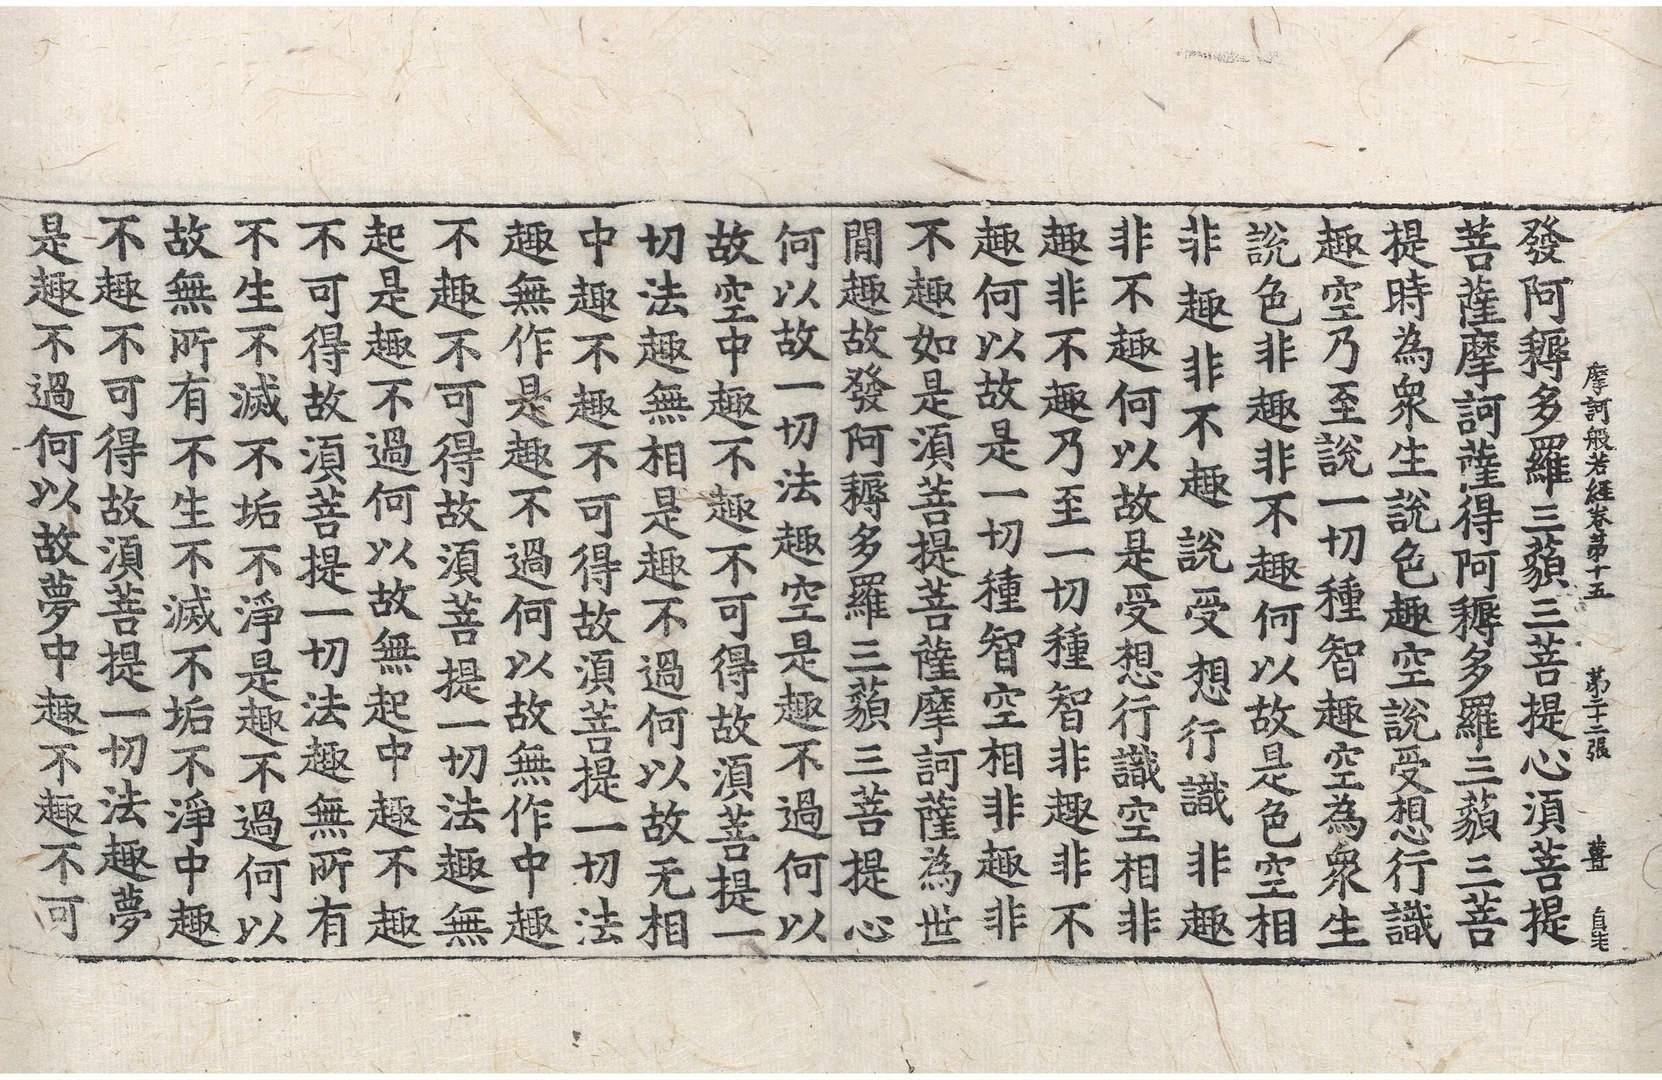 摩訶般若經卷第十五 第二十二張 薑 自牝
發阿耨多羅三藐三菩提心須菩提
菩薩摩訶薩得阿耨多羅三藐三菩
提時為衆生說色趣空說受想行識
趣空乃至說一切種智趣空為衆生
說色非趣非不趣何以故是色空相
非趣非不趣說受想行識非趣
非不趣何以故是受想行識空相非
趣非不趣乃至一切種智非趣非不
趣何以故是一切種智空相非趣非
不趣如是須菩提菩薩摩訶薩為世
閒趣故發阿耨多羅三藐三菩提心
何以故一切法趣空是趣不過何以
故空中趣不趣不可得故須菩提一
切法趣無相是趣不過何以故无相
中趣不趣不可得故須菩提一切法
趣無作是趣不過何以故無作中趣
不趣不可得故須菩提一切法趣無
起是趣不過何以故無起中趣不趣
不可得故須菩提一切法趣無所有
不生不滅不垢不淨是趣不過何以
故無所有不生不滅不垢不淨中趣
不趣不可得故須菩提一切法趣夢
是趣不過何以故夢中趣不趣不可